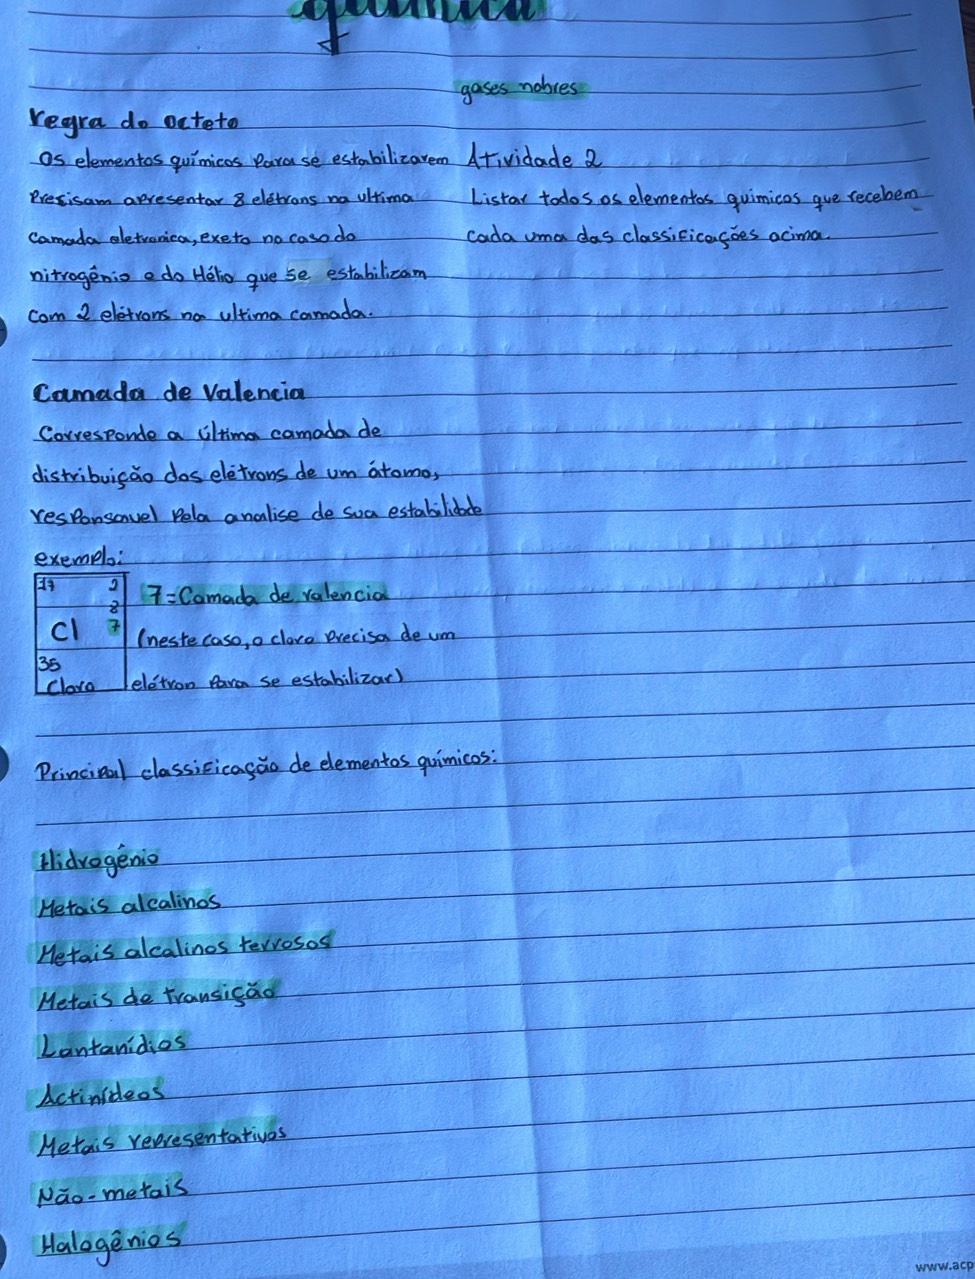 química
regra do octeto
Os elementos químicos para se estabilizarem
Presisam apresentar 8 elétrons na ultima
camada eletronica, exeto no caso do
nitrogênio e do Hélio que se estabilizam
com 2 elétrons na ultima camada.
Camada de Valencia
Corresponde a última camada de
distribuição dos elétrons de um átomo,
responsavel pela analise de sua estabilidade
exemplo:
17 2
8
Cl 7
35
Cloro
7=Camada de valencia
(neste caso, o cloro precisa de um
elétron para se estabilizar)
Principal classificação de elementos químicos:
Hidrogênio
Metais alcalinos
Metais alcalinos terrosos
Metais de transição
Lantanídios
Actinídeos
Metais representativos
Não-metais
Halogênios
gases nobres
Atividade 2
Listar todos os elementos quimicos que recebem
cada uma das classificações acima.
www.acp